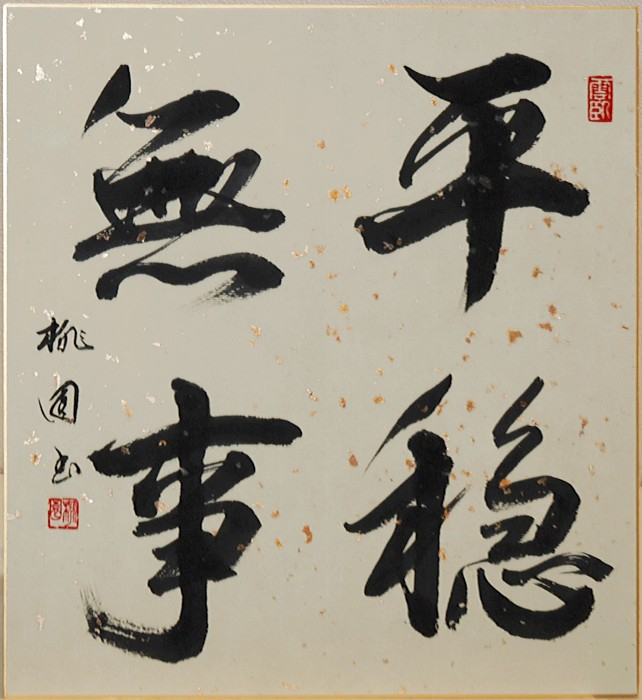 平穏
無事
桃園書